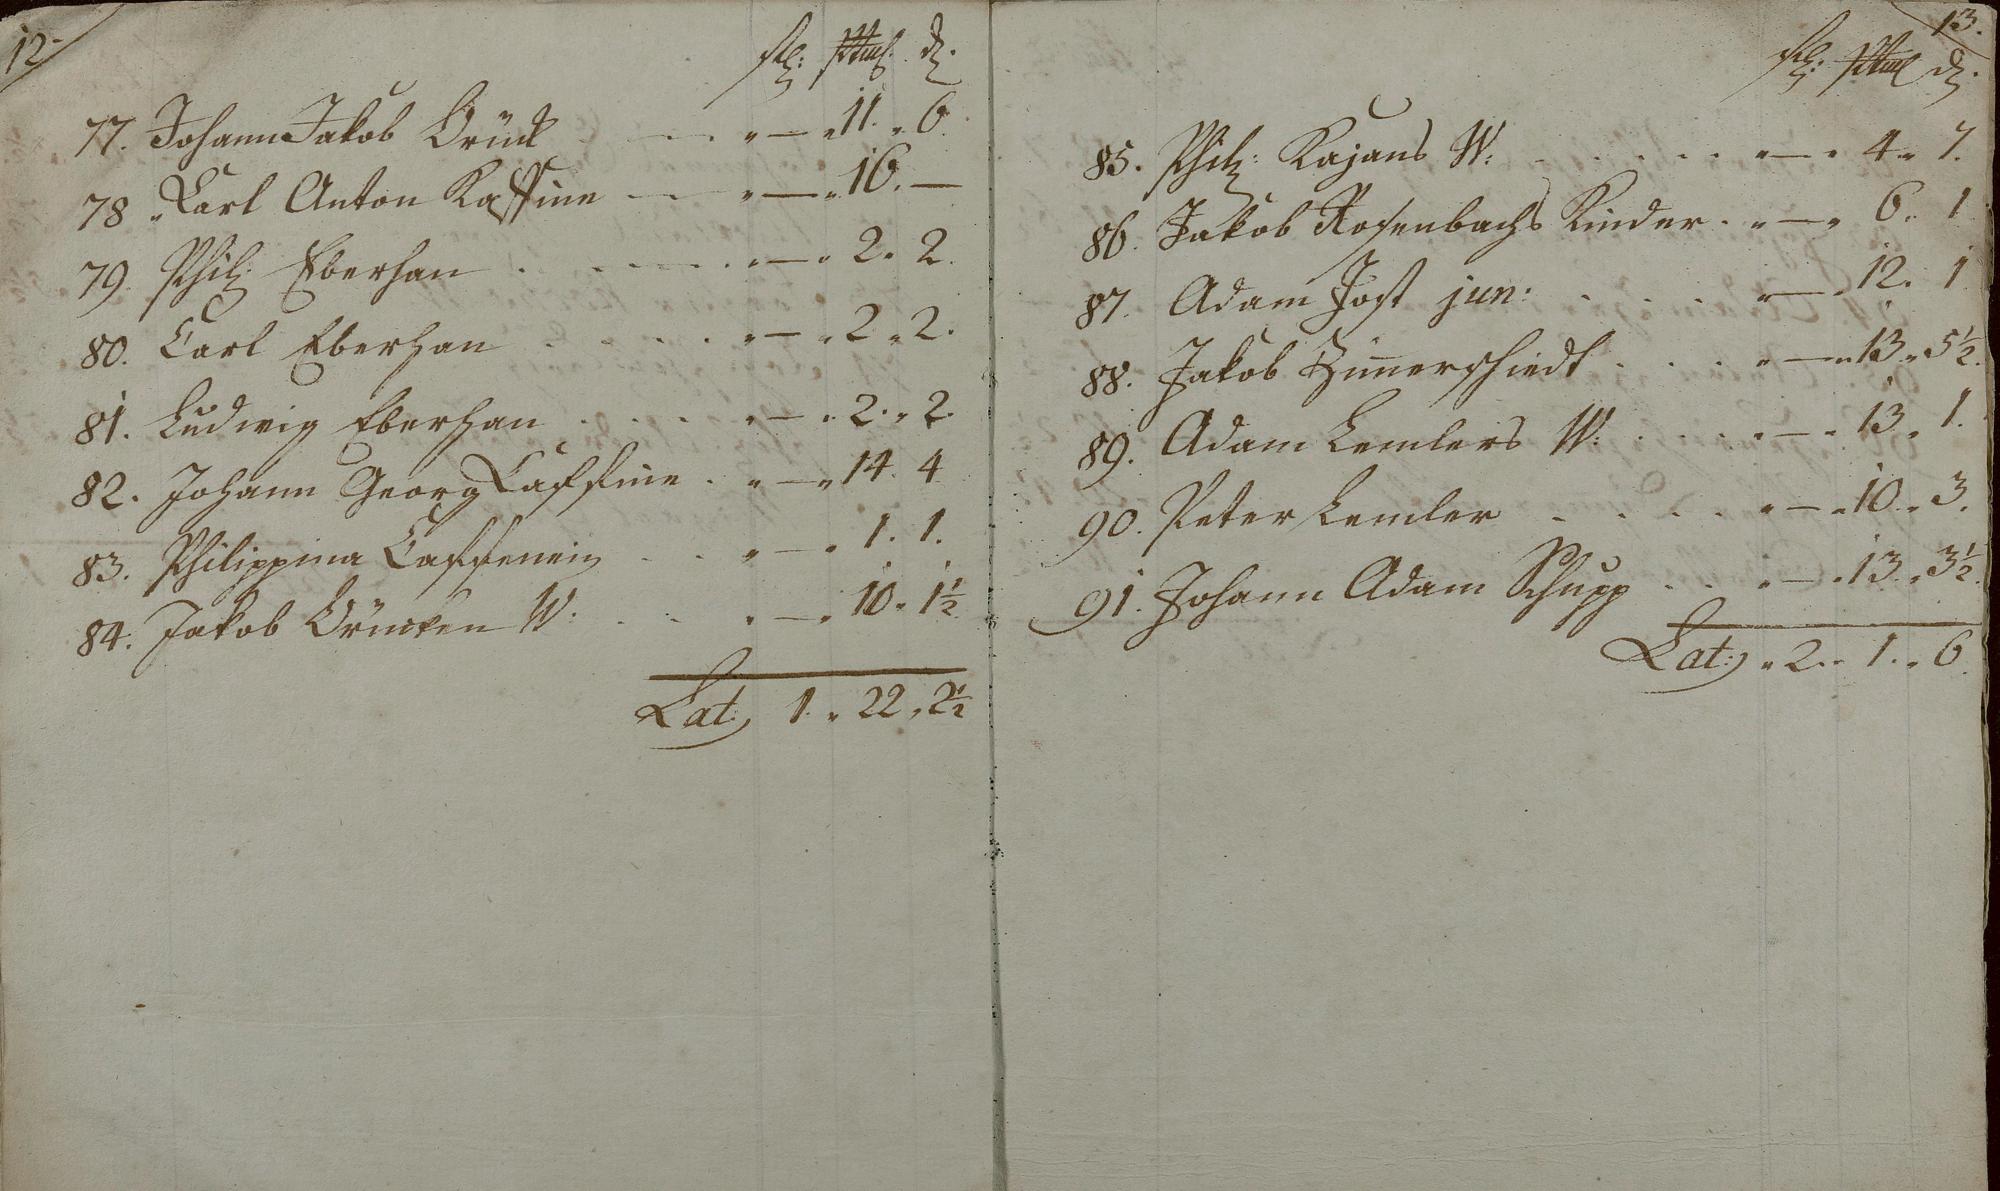 12
77. Johann Jakob Brück . — „ — „ 11. „ 6.
78 „ Carl Anton Kaffine — „ — „ 16. —
79. Phil: Eberhan . . . „ — „ 2. 2.
80. Carl Eberhan . . . . „ — „ 2 „ 2.
81. Ludwig Eberhan . . . . „ — „ 2. „ 2.
82. Johann Georg Caffine . „ — „ 14. 4
83. Philippina . . „ — „ 1. 1.
84. Jakob W: . . „ — „ 10. 1½
Lat: 1. „ 22 „ 2½
13.
85. Phil: Kajans W: . . . . . „ — „ 4 „ 7.
86. Jakob Rosenbachs Kinder . „ — „ 6. 1
87. Adam Jost jun: . . . „ — „ 12. 1
88. Jakob Zimerschiedt . . . „ — „ 13 „ 5½.
89. Adam Lemlers W: . . . „ — „ 13 „ 1.
90. Peter Lemler . . . . „ — „ 10. „ 3.
91. Johann Adam Schupp . . „ — „ 13. „ 3½.
Lat: „ 2. „ 1. „ 6.